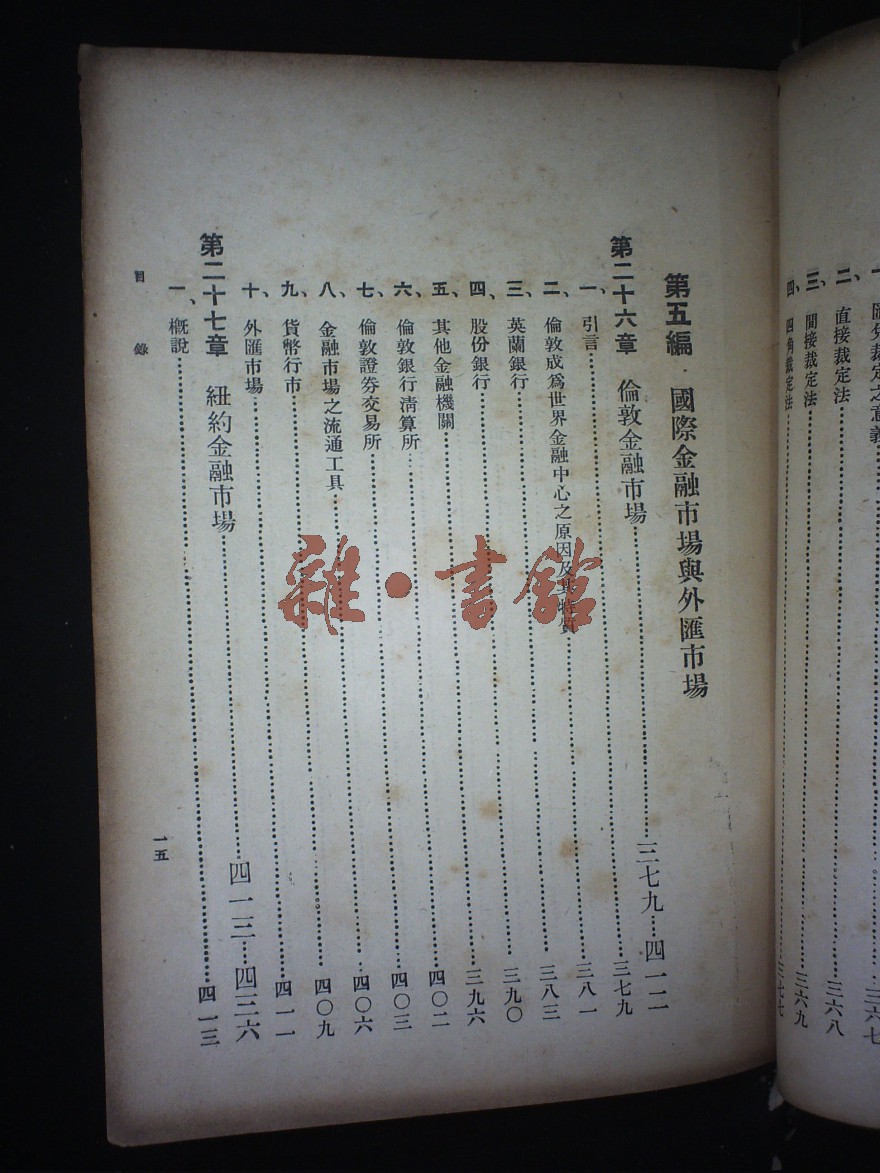 匯兌裁定之意義……三六七
二、直接裁定法……三六八
三、間接裁定法……三六九
四、四角裁定法……三七七
第五編 國際金融市場與外匯市場
第二十六章 倫敦金融市場……三七九…四一一
一、引言……三七九
二、倫敦成爲世界金融中心之原因及其特質……三八一
三、英蘭銀行……三八三
四、股份銀行……三九〇
五、其他金融機關……三九六
六、倫敦銀行淸算所……四〇二
七、倫敦證券交易所……四〇三
八、金融市場之流通工具……四〇六
九、貨幣行市……四〇九
十、外匯市場……四一一
第二十七章 紐約金融市場……四一三…四二六
一、概說……四一三
目錄
一五
雜·書館